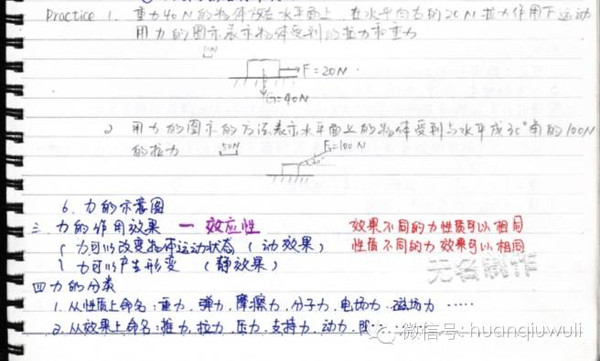 Practice 1. 重力40N的物体放在水平面上,在水平向右的20N拉力作用下运动
用力的图示表示物体受到的拉力和重力
10N
F=20N
G=40N
2 用力的图示的方法表示水平面上的物体受到与水平成30°角的100N
的拉力 50N
F=100N
30°
6. 力的示意图
三. 力的作用效果 — 效应性 效果不同的力性质可以相同
力可以改变物体运动状态(动效果) 性质不同的力效果可以相同
力可以产生形变(静效果)
无名制作
四 力的分类
1. 从性质上命名:重力、弹力、摩擦力、分子力、电场力、磁场力……
2. 从效果上命名:推力、拉力、压力、支持力、动力、阻
微信号: huanqiuwuli